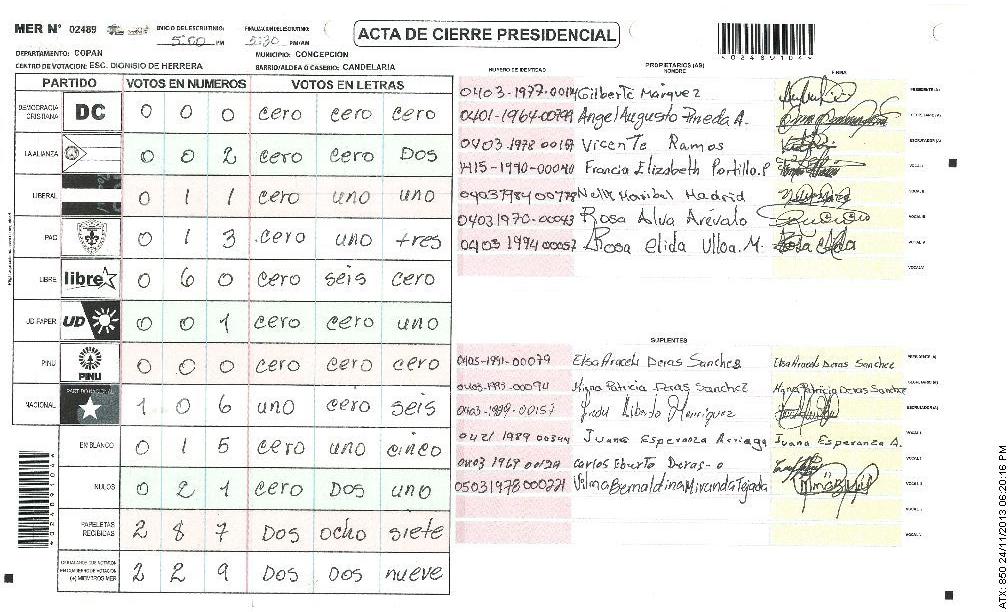 MER N° 02489
INICIO DEL ESCRUTINIO: 5:00 PM
FINALIZACION DEL ESCRUTINIO: 5:30 PM/AM
ACTA DE CIERRE PRESIDENCIAL
02489104
DEPARTAMENTO: COPAN
MUNICIPIO: CONCEPCION
CENTRO DE VOTACION: ESC. DIONISIO DE HERRERA
BARRIO/ALDEA O CASERIO: CANDELARIA
PARTIDO VOTOS EN NUMEROS VOTOS EN LETRAS
DEMOCRACIA CRISTIANA DC 0 0 0 cero cero cero
LA ALIANZA 0 0 2 cero cero Dos
LIBERAL 0 1 1 cero uno uno
PAC 0 1 3 cero uno tres
LIBRE libre 0 6 0 cero seis cero
UD FAPER UD 0 0 1 cero cero uno
PINU PINU 0 0 0 cero cero cero
NACIONAL 1 0 6 uno cero seis
EN BLANCO 0 1 5 cero uno cinco
NULOS 0 2 1 cero Dos uno
PAPELETAS RECIBIDAS 2 8 7 Dos ocho siete
(+) MIEMBROS MER 2 2 9 Dos Dos nueve
NUMERO DE IDENTIDAD
PROPIETARIOS (AS)
NOMBRE
FIRMA
Gilberto Marquez PRESIDENTE (A)
Angel Augusto Pineda A. SECRETARIO (A)
Vicente Ramos ESCRUTADOR (A)
1415-1990-00040 Francia Elizabeth Portillo. P VOCAL I
Madrid VOCAL II
0401 1970-00043 Rosa Alva Arevalo VOCAL III
0403 1974 00057 Rosa elida Ulloa. M. VOCAL IV
VOCAL V
SUPLENTES
0405-1991-00079 Elsa Araceli Deras Sanchez Elsa Araceli Deras Sanchez PRESIDENTE (A)
Patricia Deras Sanchez Patricia Deras Sanchez SECRETARIO (A)
0403-1989-00157 ESCRUTADOR (A)
0421 1989 00344 Juana Esperanza Arriaga Juana Esperanza A. VOCAL I
carlos Eberto Deras-o VOCAL II
05031978000221 Vilma Bernaldina Miranda Tejada VOCAL III
ATX: 850 24/11/2013 06:20:16 PM